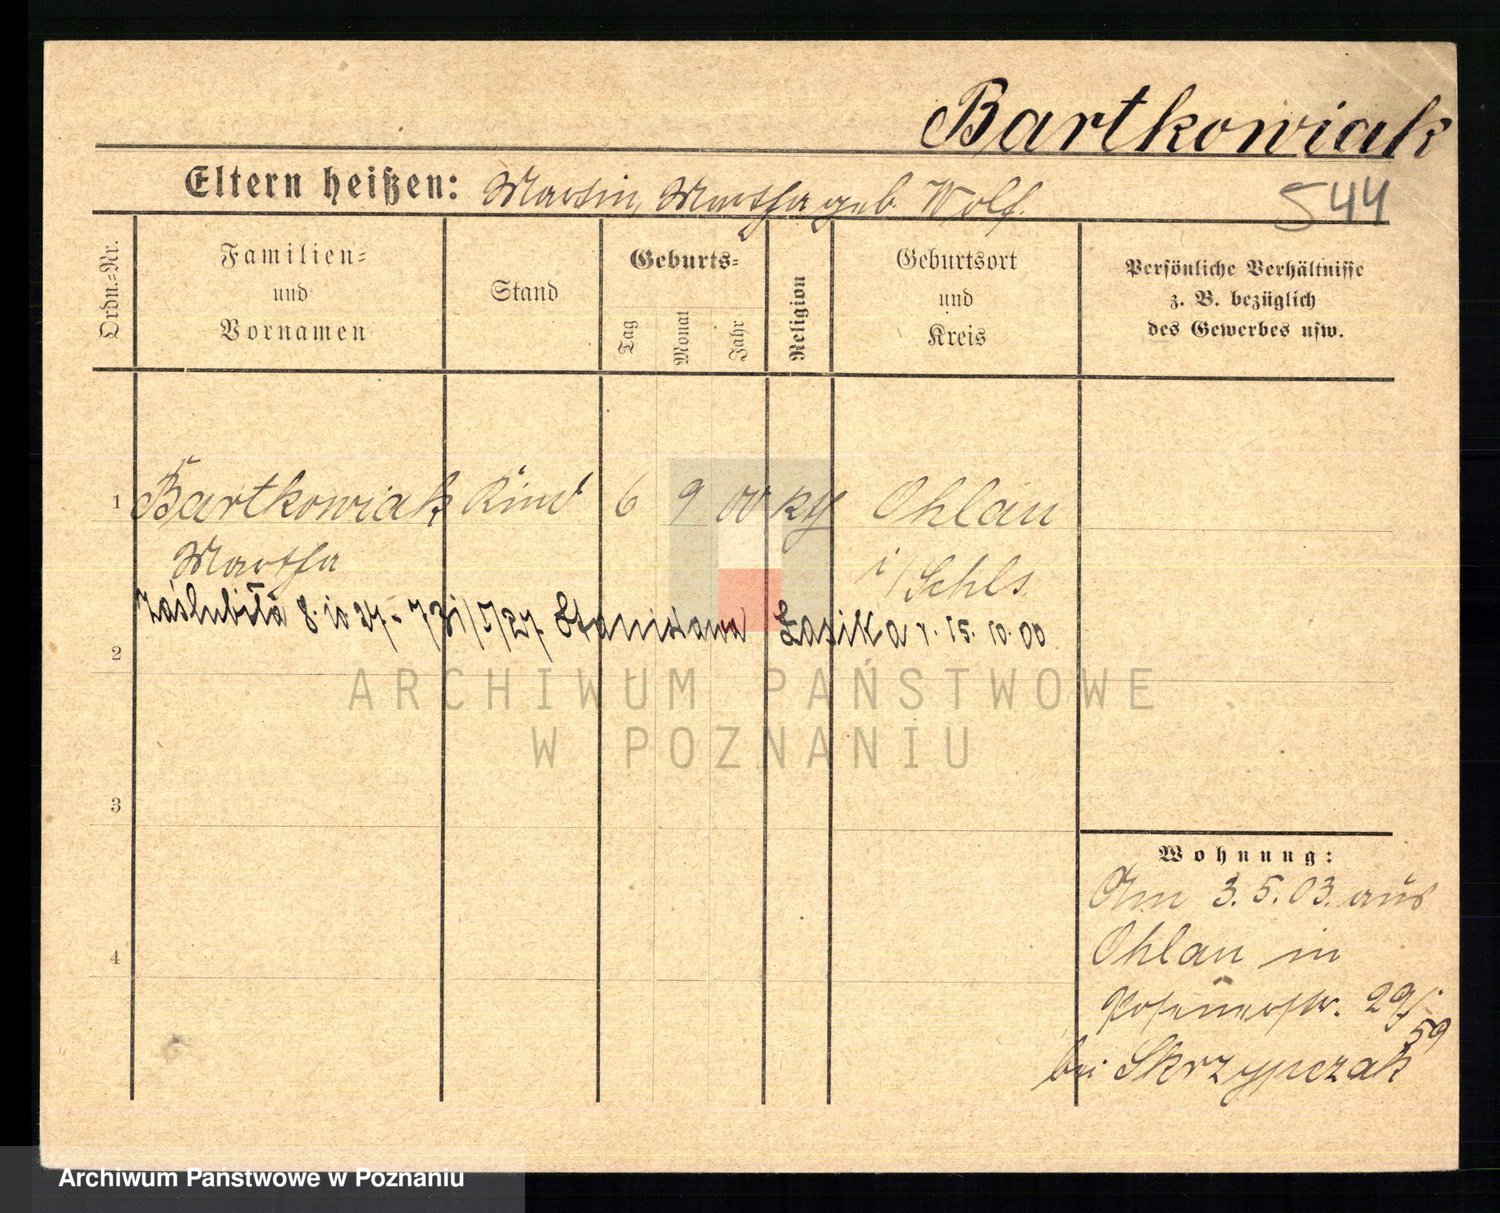 Bartkowiak
Eltern heißen: Martin, Martha geb. Wolf.
544
Ordn.=Nr.
Familien=
und
Vornamen
Stand
Geburts=
Tag
Monat
Jahr
Religion
Geburtsort
und
Kreis
Persönliche Verhältnisse
z. B. bezüglich
des Gewerbes usw.
1 Bartkowiak Kind 6 9 00 kth Ohlau
Martha i/Schls.
zaślubiła 8. 10 27 Stanisława Lasika r. 15. 10. 00
2
3
4
Wohnung:
Am 3. 5. 03. aus
Ohlau in
Posenerstr. 29/
59
bei Skrzypczak
ARCHIWUM PAŃSTWOWE
W POZNANIU
Archiwum Państwowe w Poznaniu